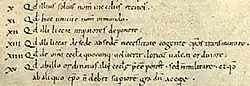 X Qd illius solius nom in ecclis recitet.
XI Qd hoc unicu nom in mundo.
XII Qd illi liceat imperatores deponere.
XIII Qd illi liceat de sede ad sede necessitate cogente epos transmutare.
XIIII Qd de omi eccla quocunq; voluerit clericu valeat ordinare.
XV Qd ab illo ordinatus alii eccle pee potest sed n militare; et qd
ab aliquo epo n debet superiore gradu accipe.